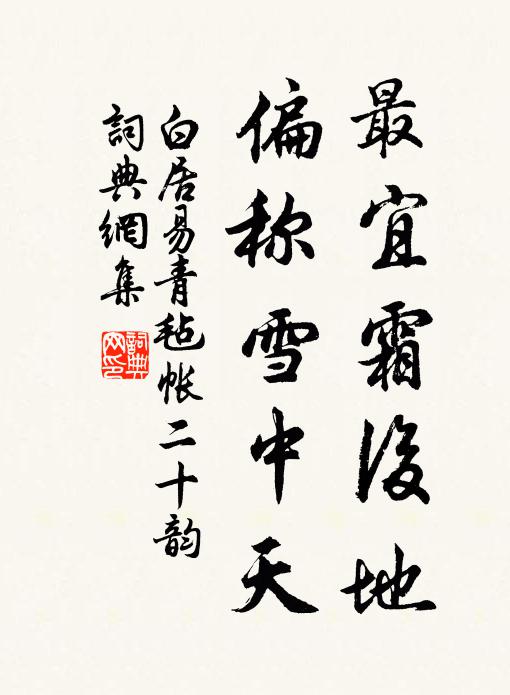 最宜霜後地
偏称雪中天
白居易青毡帐二十韵
詞典網集
詞典网印